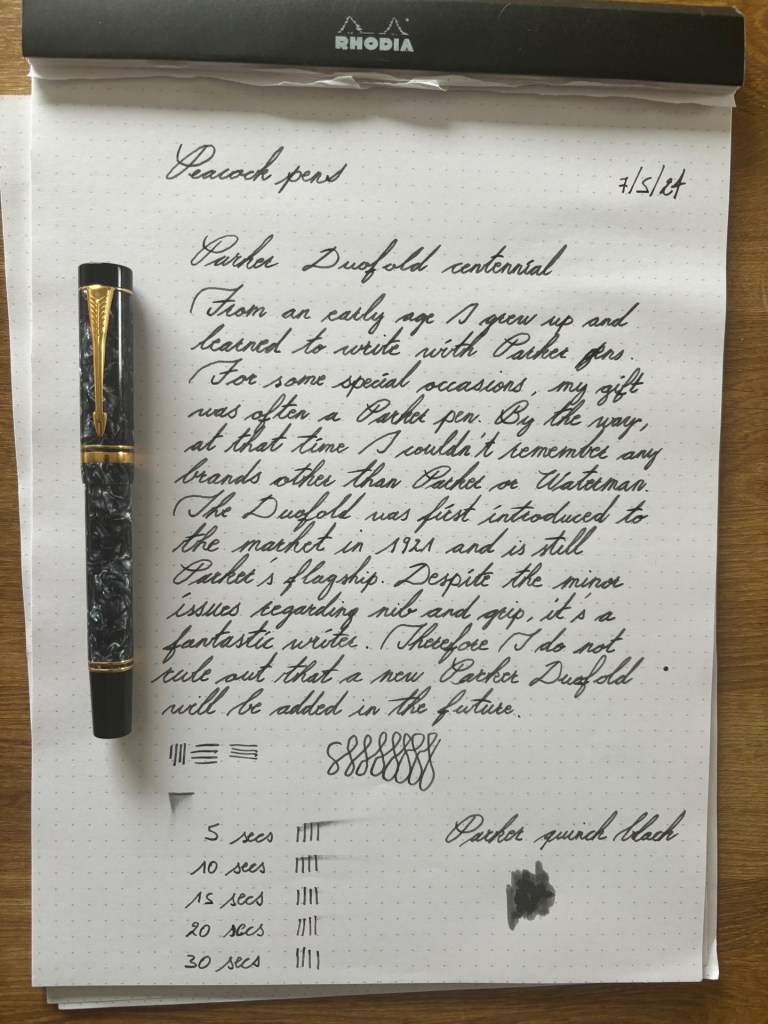 RHODIA
Peacock pens
7/5/24
Parker Duofold centennial
From an early age I grew up and
learned to write with Parker pens.
For some special occasions, my gift
was often a Parker pen. By the way,
at that time I couldn't remember any
brands other than Parker or Waterman.
The Duofold was first introduced to
the market in 1921 and is still
Parker's flagship. Despite the minor
issues regarding nib and grip, it's a
fantastic writer. Therefore I do not
rule out that a new Parker Duofold
will be added in the future.
5 secs
Parker quinck black
10 secs
15 secs
20 secs
30 secs